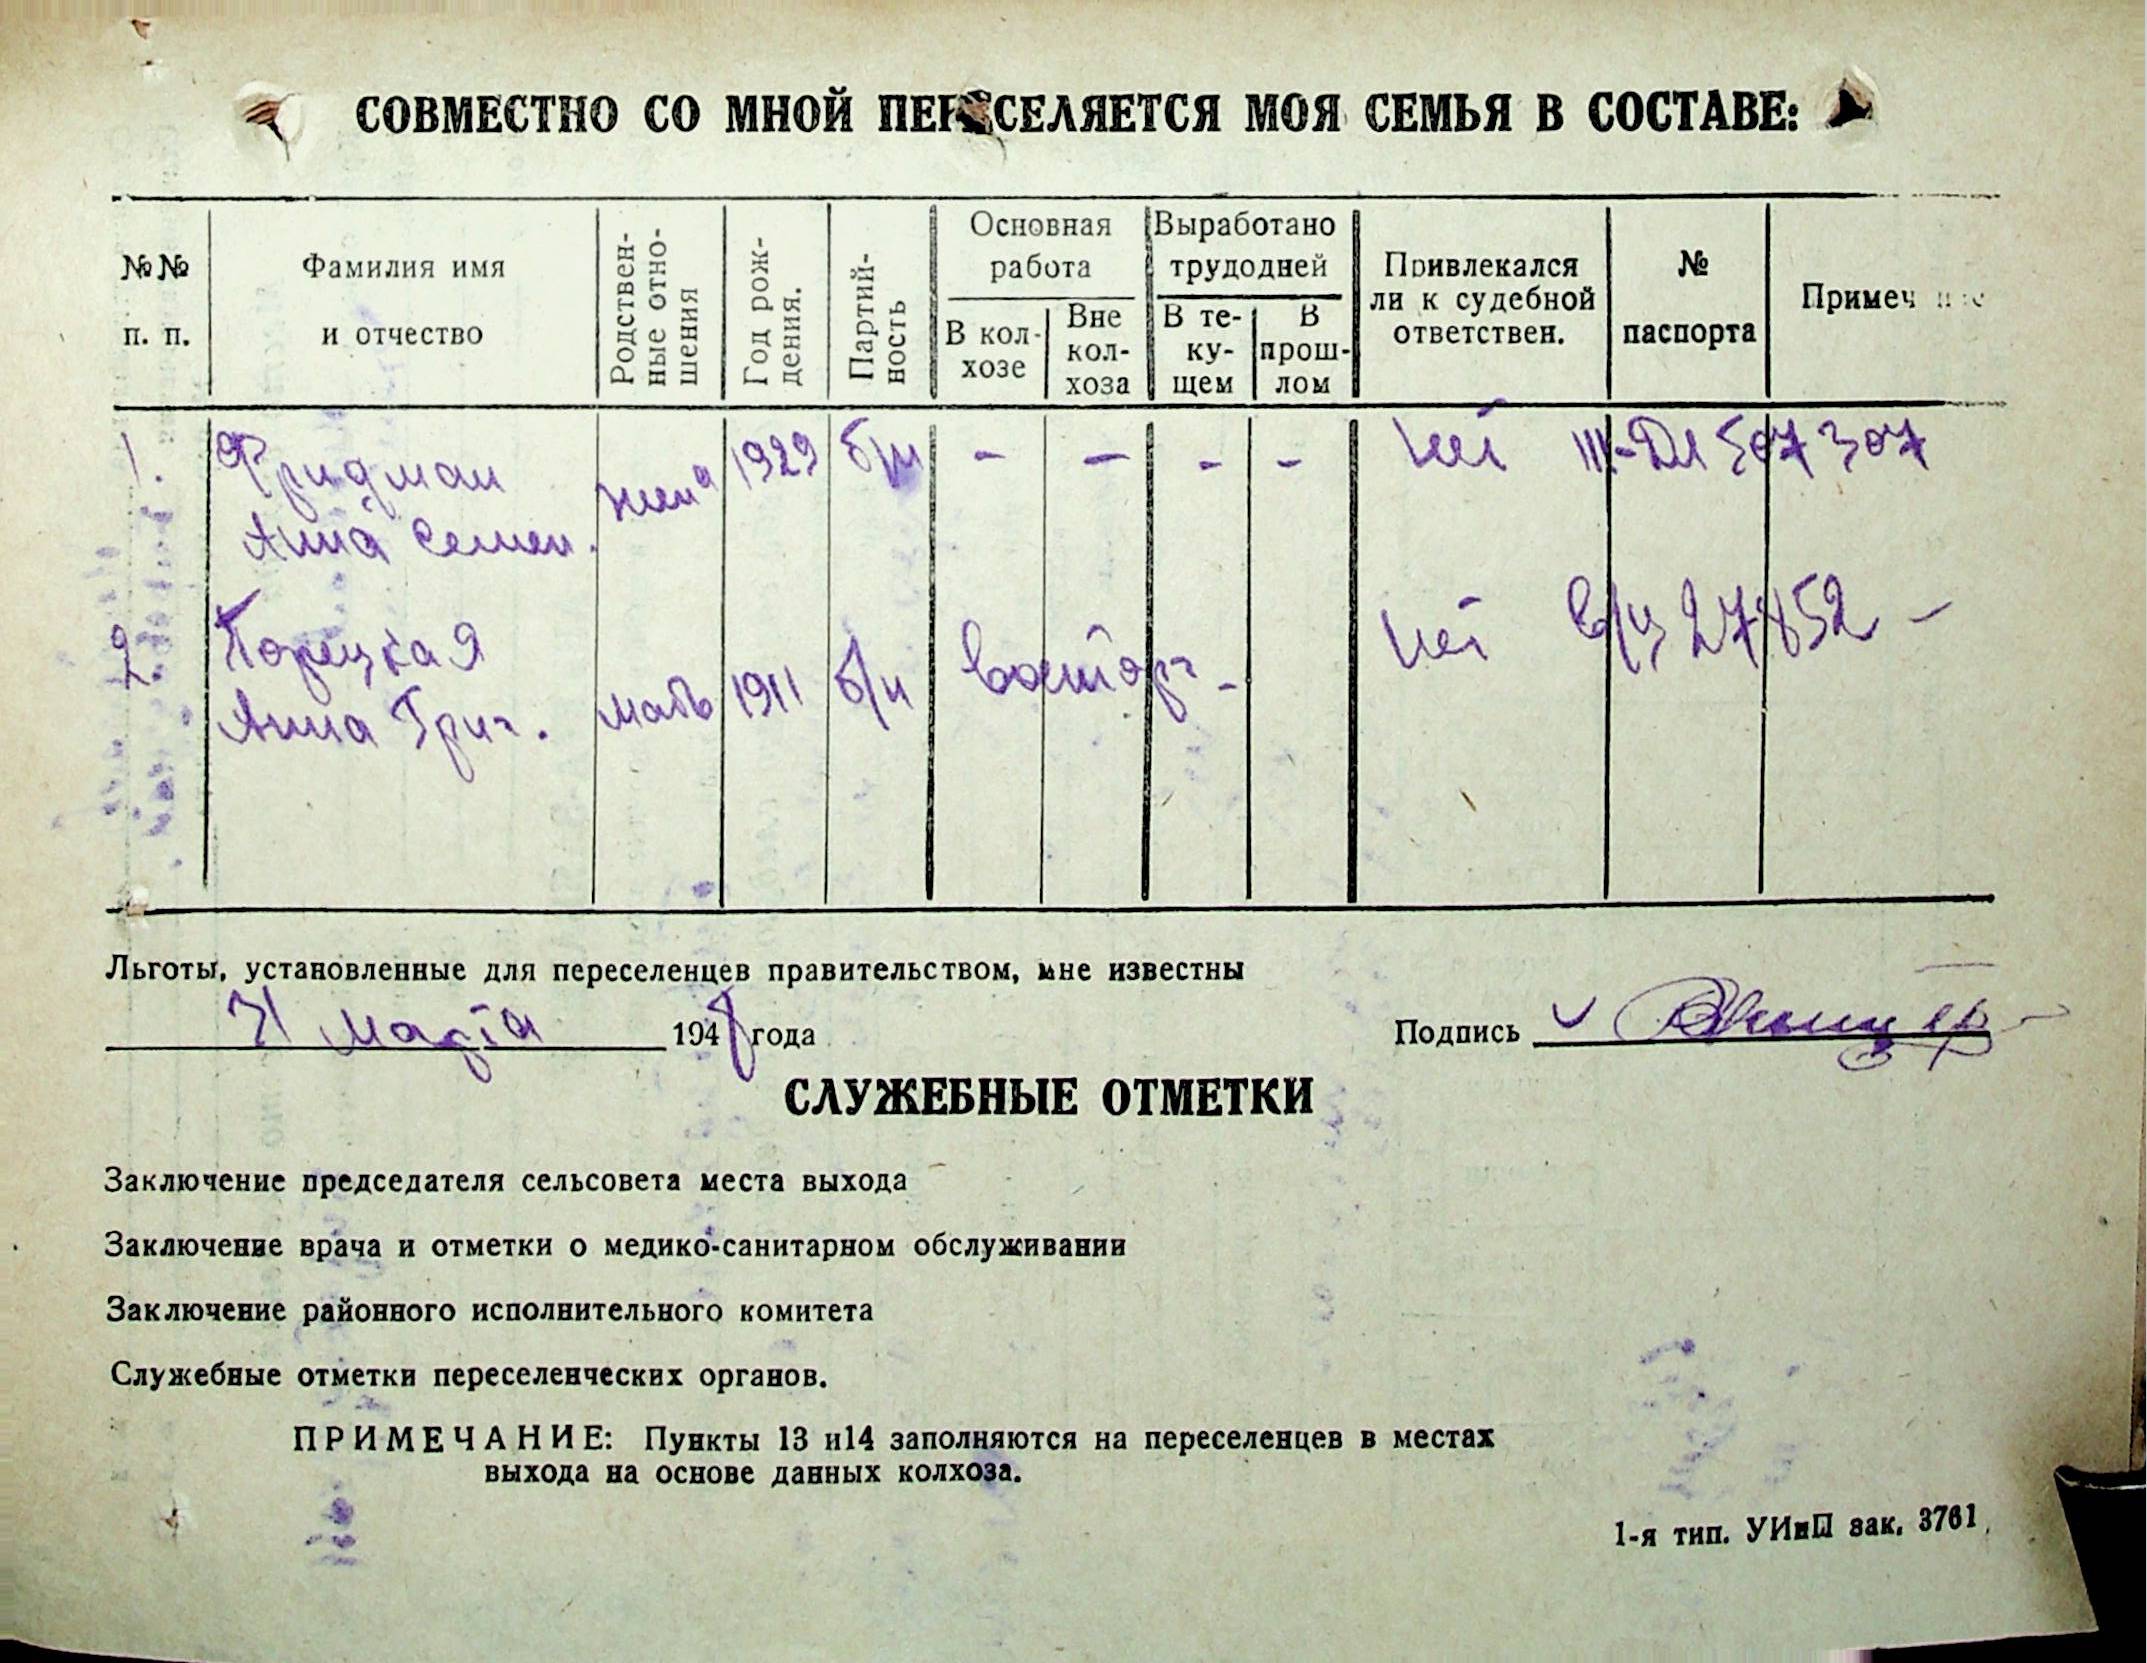 СОВМЕСТНО СО МНОЙ ПЕРЕСЕЛЯЕТСЯ МОЯ СЕМЬЯ В СОСТАВЕ:
№№ п. п.
Фамилия имя и отчество
Родствен-ные отно-шения
Год рож-дения.
Партий-ность
Основная работа
В кол-хозе
Вне кол-хоза
Выработано трудодней
В те-ку-щем
В прош-лом
Привлекался ли к судебной ответствен.
№ паспорта
Примеч
1. Фридман жена 1929 б/п - - - - нет III-ДЛ 507307
Анна Семен.
2. Порецкая мать 1911 б/п - нет 27852 -
Анна Григ.
Льготы, установленные для переселенцев правительством, мне известны
31 Марта 1948 года
Подпись
СЛУЖЕБНЫЕ ОТМЕТКИ
Заключение председателя сельсовета места выхода
Заключение врача и отметки о медико-санитарном обслуживании
Заключение районного исполнительного комитета
Служебные отметки переселенческих органов.
ПРИМЕЧАНИЕ: Пункты 13 и14 заполняются на переселенцев в местах
выхода на основе данных колхоза.
1-я тип. УИиП зак. 3761